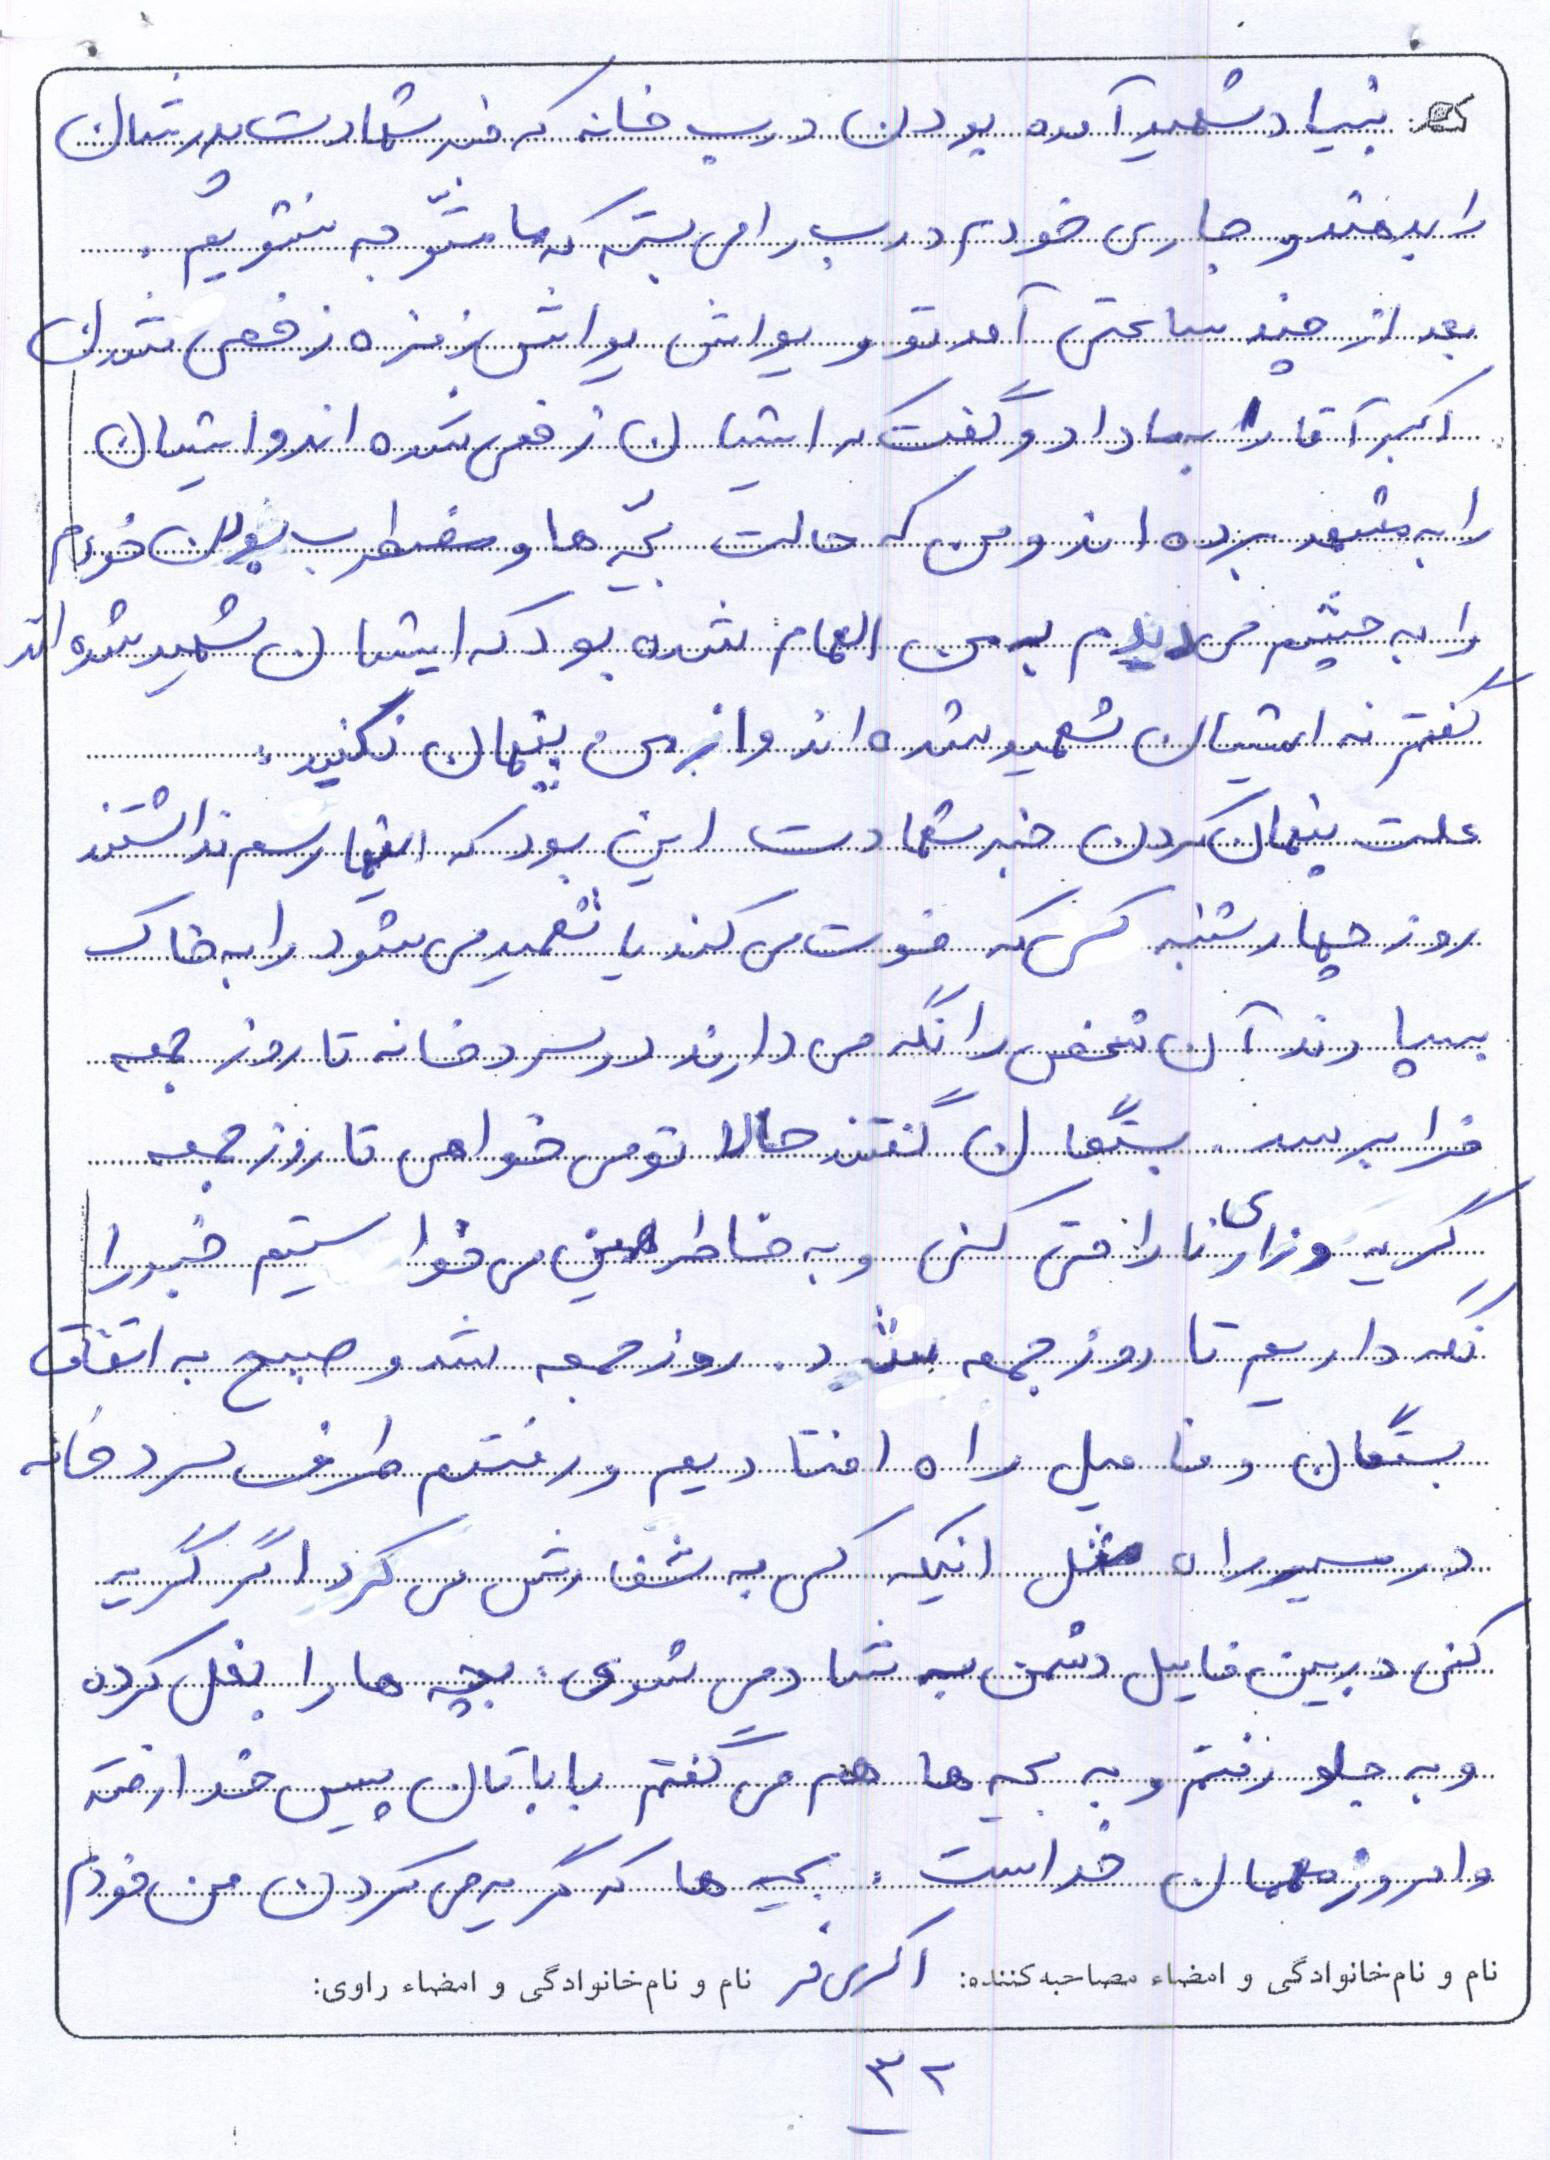 بنیاد شهید آمده بودن درب خانه که خبر شهادت پدرشان
را بدهند و جاری خودم درب را می بسته که ما متوّجه نشویم .
بعد از چند ساعتی آمد تو و یواش یواش زمزه زخمی شدن
اکبر آقا را به ما داد و گفت که ایشان زخمی شده اند و ایشان
را به مشهد برده اند و من که حالت بچّه ها و مضطرب بودن خودم
را به چشم می دیدم به من الهام شده بود که ایشان شهید شده اند
گفتم نه ایشان شهید شده اند و از من پنهان نکنید .
علت پنهان کردن خبر شهادت این بود که اینها رسم نداشتند
روز چهارشنبه کسی که فوت می کند یا شهید می شود را به خاک
بسپارند آن شخص را نگه می دارند در سردخانه تا روز جمعه
فرا برسد . بستگان گفتند حالا تو می خواهی تا روز جمعه
گریه و زاری نا راحتی کنی و به خاطر همین می خواستیم خبر را
نگه داریم تا روز جمعه بشود . روز جمعه شد و صبح به اتفاق
بستگان و فامیل راه افتادیم و رفتم طرف سردخانه
در مسیر راه مثل اینکه کسی به سفارش می کرد اگر گریه
کنی در بین فامیل دشمن به شاد می شوی . بچه ها را بغل کرده
و به جلو رفتم و به بچه ها هم می گفتم باباتان پیس خدا رفته
و امروز مهمان خداست . بچه ها که گریه می کردن من خودم
نام و نام‌خانوادگی و امضاء مصاحبه‌کننده: نام و نام‌خانوادگی و امضاء راوی:
۳۲